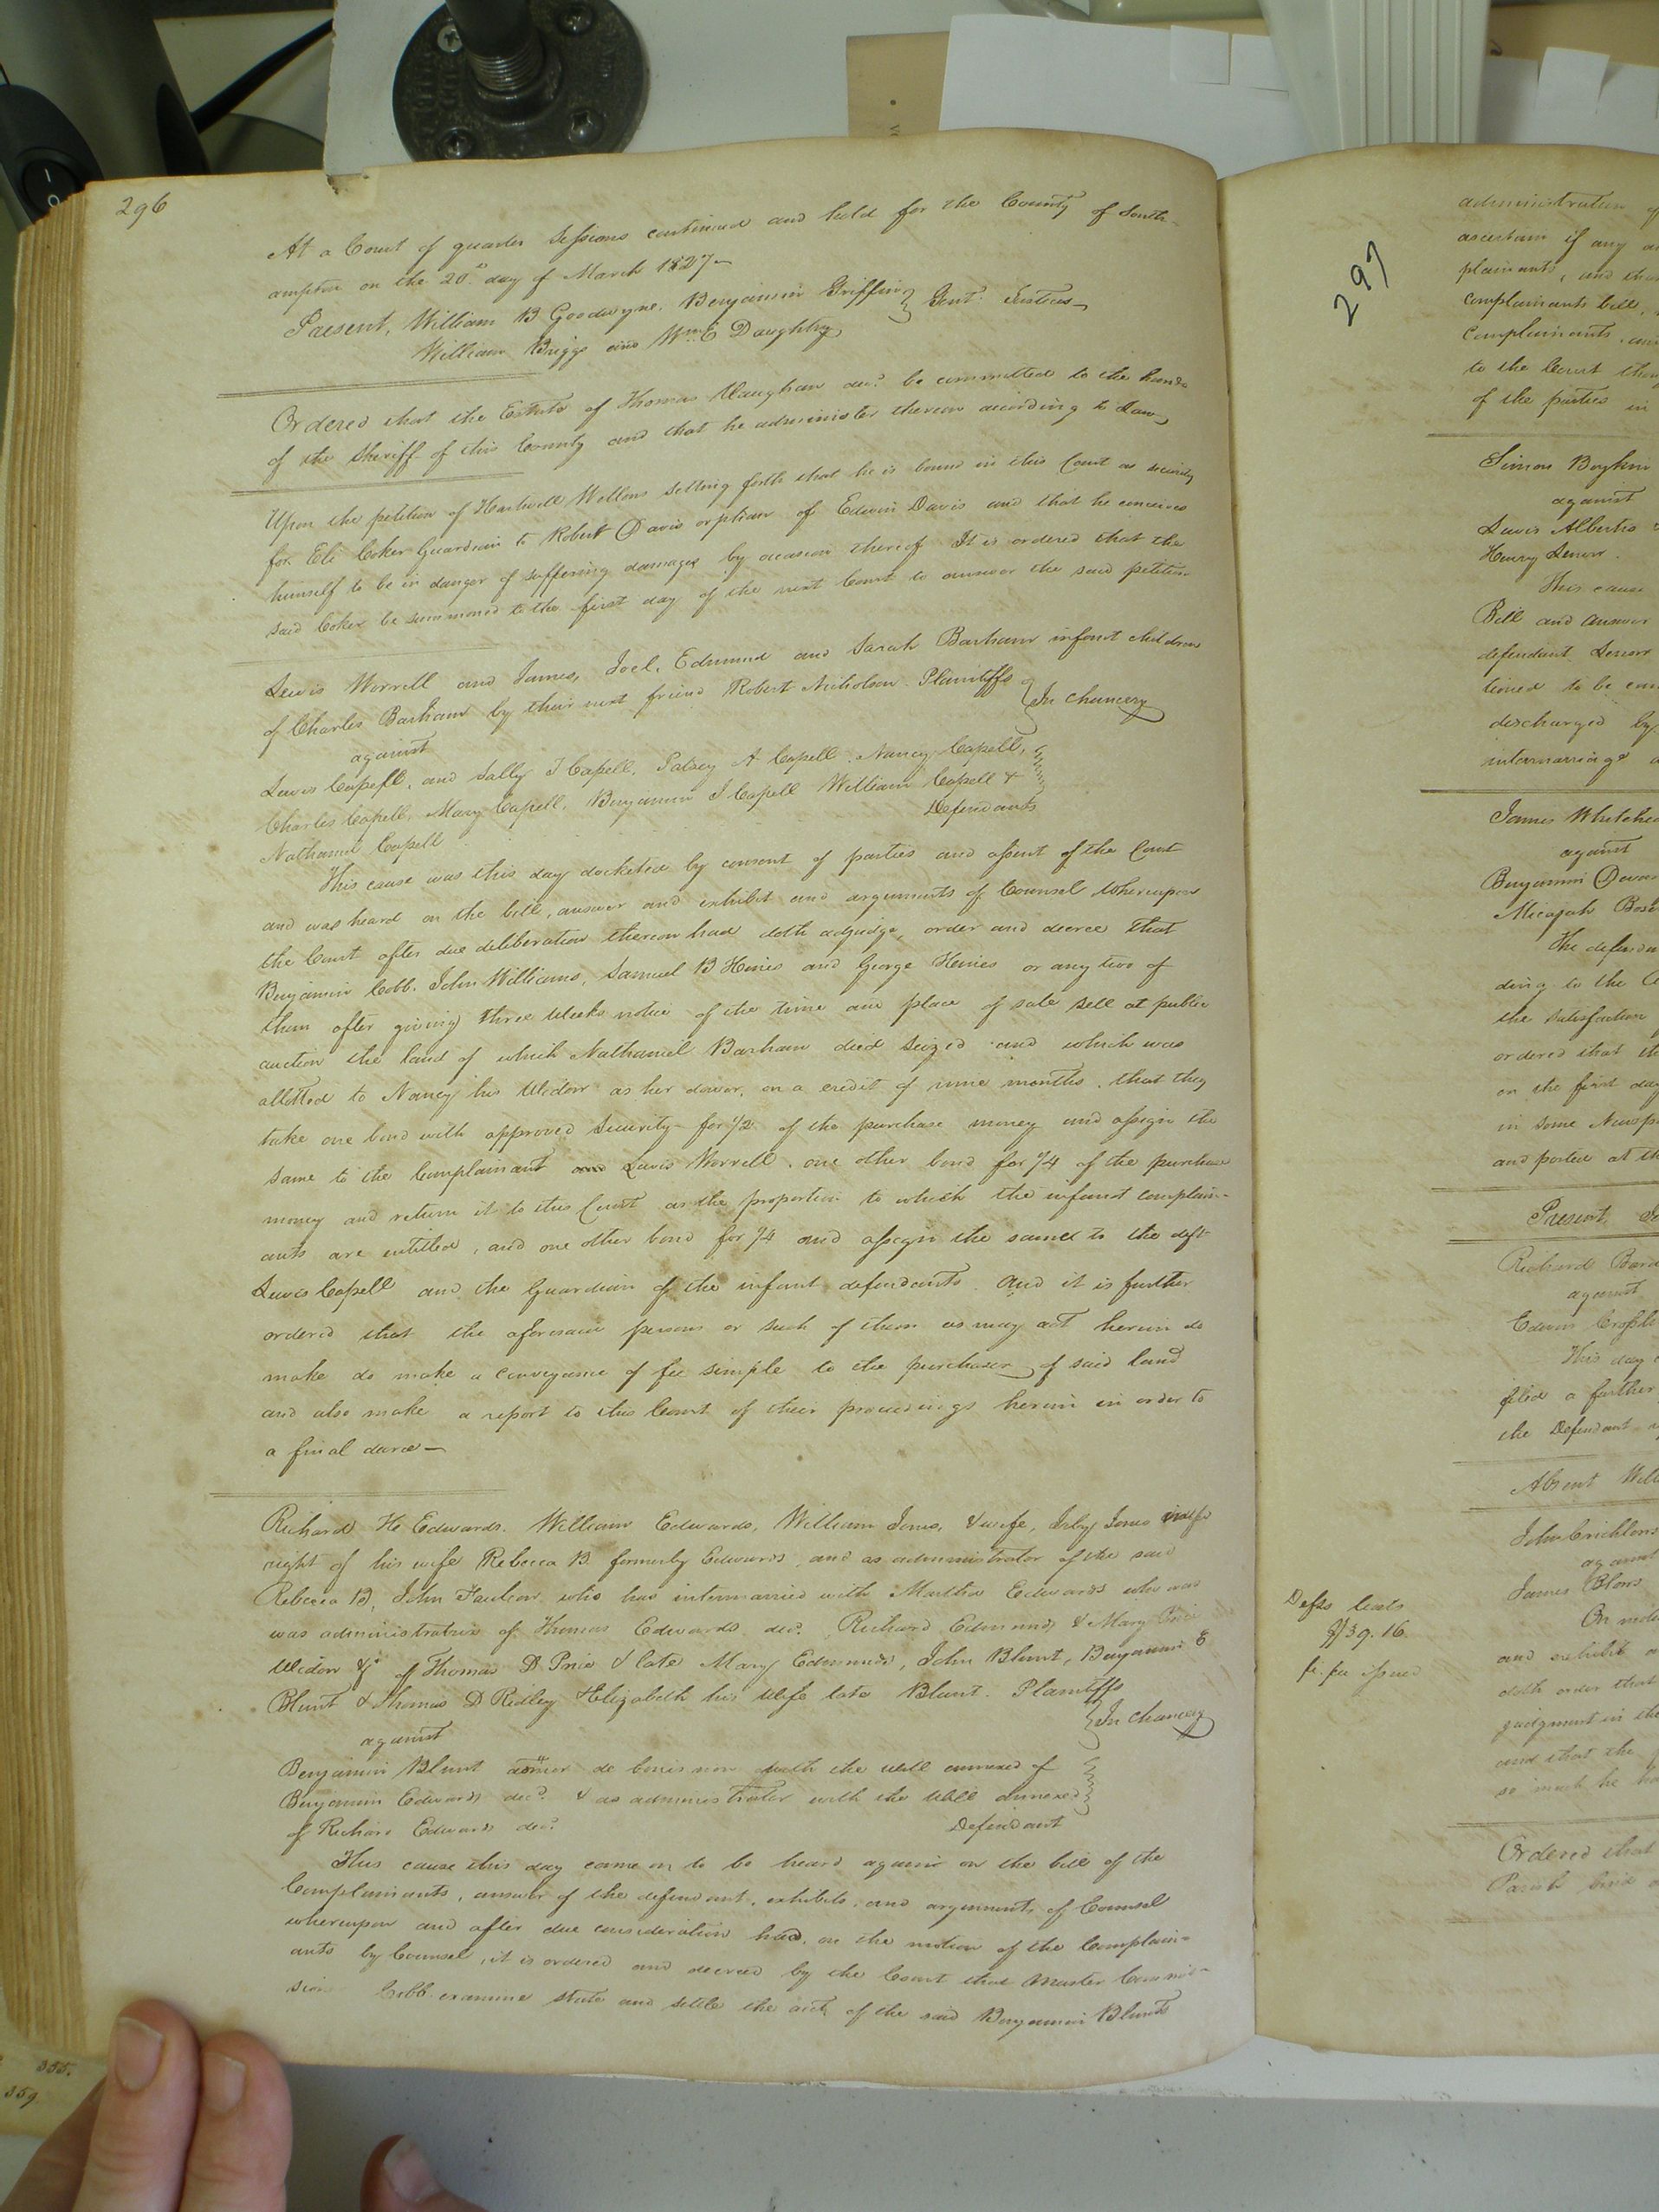 296
At a Court of quarter Sessions continued and held for the County of South-
ampton on the 20th day of March 1827
Present, William B Goodwyne, Benjamin Griffin } Gent. Justices
William Briggs and Wm. E Daughtry
Ordered that the Estate of Thomas Vaughan decd. be committed to the hands
of the Sheriff of this County and that he administer thereon according to Law
Upon the petition of Hartwell setting forth that he is bound in this Court as security
for Eli Coker Guardian to Robert Davis orphan of Edwin Davis and that he conceives
himself to be in danger of suffering damages by occasion thereof It is ordered that the
said Coker be summoned to the first day of the next Court to answer the said petition
Lewis Worrell and James, Joel, Edmund and Sarah Barham infant children
of Charles Barham by their next friend Robert Nicholson Plaintiffs } In Chancery
against
Lewis Capell, and Sally J Capell, Patsey A Capell, Nancy Capell,
Charles Capell, Mary Capell, Benjamin J Capell William Capell &
Nathaniel Capell Defendants
This cause was this day docketed by consent of parties and assent of the Court
and was heard on the bill, answer and exhibit and arguments of Counsel Whereupon
the Court after due deliberation thereon had doth adjudge, order and decree that
Benjamin Cobb, John Williams, Samuel B Hines and George Hines or any two of
them after giving three weeks notice of the time and place of sale sell at public
auction the land of which Nathaniel Barham died seized and which was
allotted to Nancy his Widow as her dower, on a credit of nine months, that they
take one bond with approved Security for 1/2 of the purchase money and assign the
same to the Complainant Lewis Worrell, one other bond for 1/4 of the purchase
money and return it to this Court as the proportion to which the infant complain-
ants are entitled, and one other bond for 1/4 and assign the same to the deft
Lewis Capell and the Guardian of the infant defendants. And it is further
ordered that the aforesaid persons or such of them as may act herein do
make do make a conveyance of fee simple to the purchaser of said land
and also make a report to this Court of their proceedings herein in order to
a final decree
Richard H Edwards, William Edwards, William Jones, & wife, Irby Jones in
right of his wife Rebecca B. formerly Edwards, and as administrator of the said
Rebecca B, John Faulcon who has intermarried with Martha Edwards who
was administratrix of Thomas Edwards decd. Richard Edmunds & Mary Price
Widow &c of Thomas D Price & late Mary Edmunds, John Blunt, Benjamin E
Blunt & Thomas D Ridley & Elizabeth his wife late Blunt. Plaintiffs
} In Chancery
against
Benjamin Blunt admor de bonis non with the will annexed of
Benjamin Edwards decd. & as administrator with the Will annexed
of Richard Edwards decd. Defendant
This cause this day came on to be heard again on the bill of the
Complainants, answer of the defendant, exhibits, and arguments of Counsel
whereupon and after due consideration had, on the motion of the Complain-
ants by Counsel, it is ordered and decreed by the Court that Master Commis-
Cobb examine state and settle the acct of the said Benjamin Blunt
355.
359
297
administration of
ascertain if any
plainants, and that
complainants bill,
Complainants
to the Court
of the parties in
Simon Boykin
against
Lewis Alberto
Henry
This cause
Bill and answer
defendant
tioned to be
discharged by
intermarriage
James Whitehead
against
Benjamin
Micajah
The defendant
ding to the
the satisfaction
ordered that
on the first day
in some Newspaper
and posted at the
Present
Richard
against
Edwin
This day
filed a further
the Defendant
Absent
John Crichlow
against
James Blow
On motion
and exhibit
doth order that
judgment in the
and that the
so much he
Defts costs
$39.16.
fi. fa issued
Ordered that
Parish bind